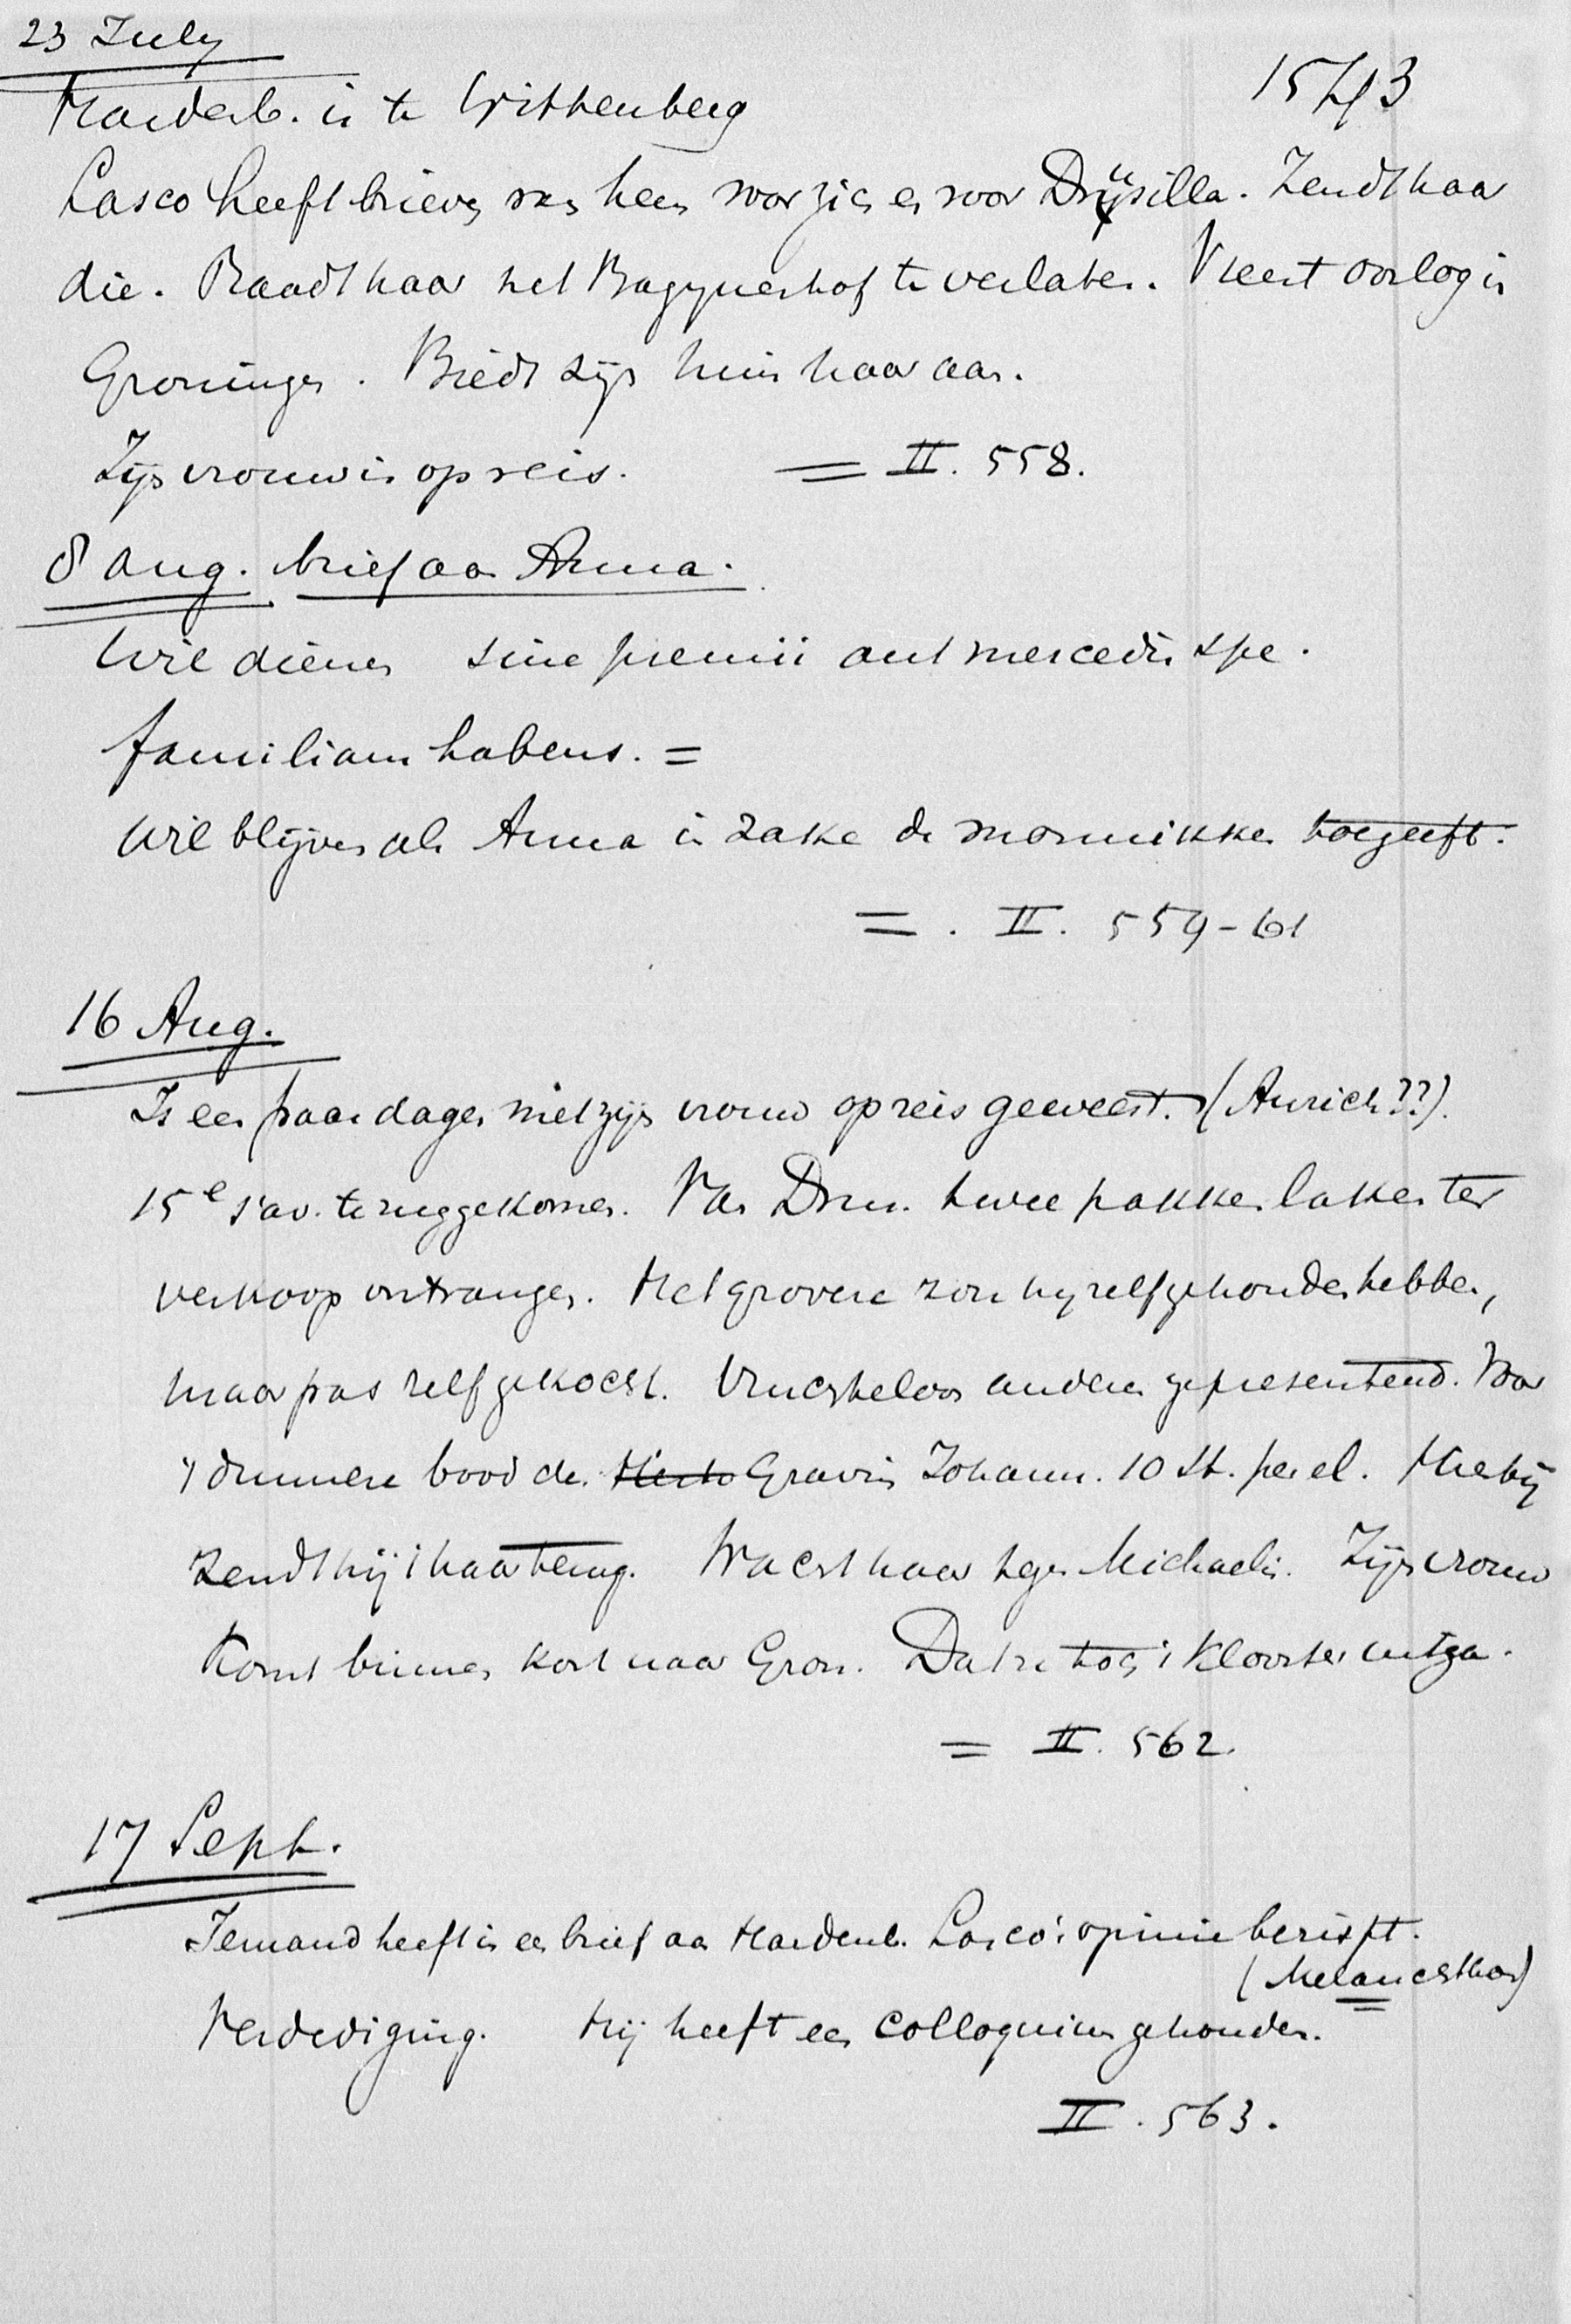 23 July
1543
Hardenb. is te Wittenberg
Lasco heeft brieven van hem voor zich en voor Drusilla. Zendt haar
die. Raadt haar het Bagynenhof te verlaten. Vreest oorlog in
Groningen. Biedt zijn huis haar aan.
Zijn vrouw is op reis. = II. 558.
8 Aug. brief aan Anna.
Wil dienen sine premii aut mercedis spe.
familiam habens. =
Wil blijven als Anna in zake de monnikken toegeeft.
=. II. 559-61
16 Aug.
Is een paar dagen met zijn vrouw op reis geweest. (Aurich??).
15e s'av. teruggekomen. Van Dru. twee pakken laken ter
verkoop ontvangen. Het grovere zou hy zelf gehouden hebben,
maar pas zelf gekocht. Vruchteloos anderen gepresenteerd. Voor
't dunnere bood de Gravin Johann. 10 st. per el. Hierbij
zendt hij 't haar terug. Wacht haar tegen Michaelis. Zijn vrouw
komt binnen kort naar Gron. Dat ze toch 't klooster uitga.
= II. 562.
17 Sept.
Iemand heeft in een brief aan Hardenb. Lasco's opinie berispt.
(Melanchthon)
Verdediging. Hij heeft een colloquium gehouden.
II. 563.